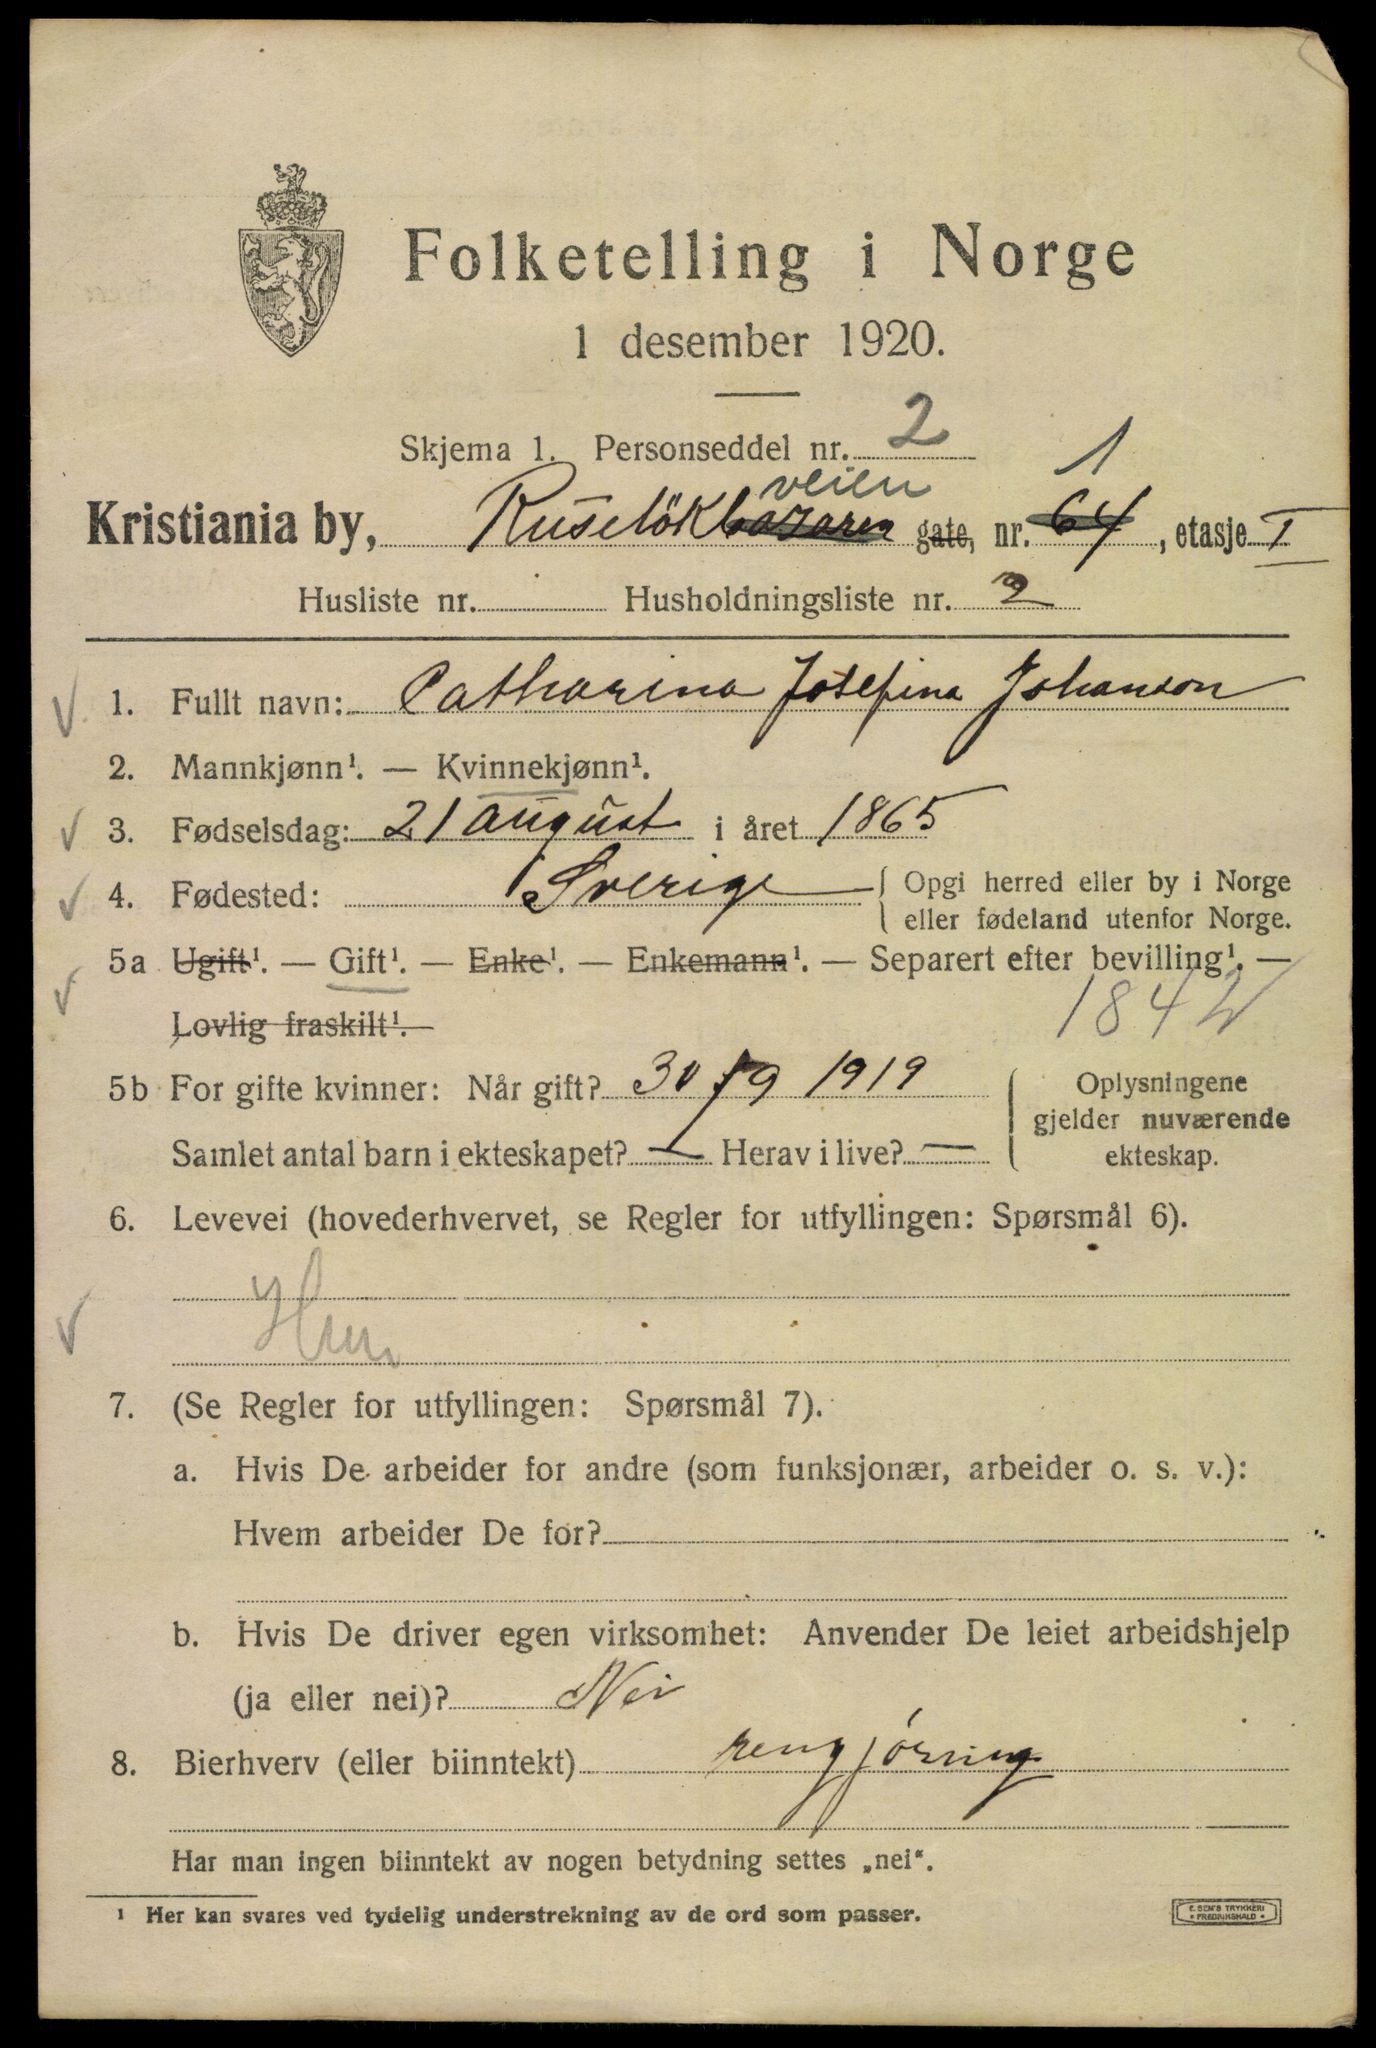 Folketelling i Norge
1 desember 1920.
Skjema 1. Personseddel nr. 2
veien 1
Kristiania by, Ruseløkbazaren gate, nr. 64, etasje I
Husliste nr. Husholdningsliste nr. 2
1. Fullt navn: Catharina Josefina Johanson
2. Mannkjønn¹. — Kvinnekjønn¹.
3. Fødselsdag: 21 august i året 1865
4. Fødested: Sverige { Opgi herred eller by i Norge
eller fødeland utenfor Norge.
5a Ugift¹. — Gift¹. — Enke¹. — Enkemann¹. — Separert efter bevilling¹. —
Lovlig fraskilt¹. 184
5b For gifte kvinner: Når gift? 30/9 1919 Oplysningene
gjelder nuværende
Samlet antal barn i ekteskapet? — Herav i live? — ekteskap.
6. Levevei (hovederhvervet, se Regler for utfyllingen: Spørsmål 6).
7. (Se Regler for utfyllingen: Spørsmål 7).
a. Hvis De arbeider for andre (som funksjonær, arbeider o. s. v.):
Hvem arbeider De for?
b. Hvis De driver egen virksomhet: Anvender De leiet arbeidshjelp
(ja eller nei)? Nei
8. Bierhverv (eller biinntekt) rengjøring
Har man ingen biinntekt av nogen betydning settes „nei“.
¹ Her kan svares ved tydelig understrekning av de ord som passer.
E. SEM'S TRYKKERI
• FREDRIKSHALD •